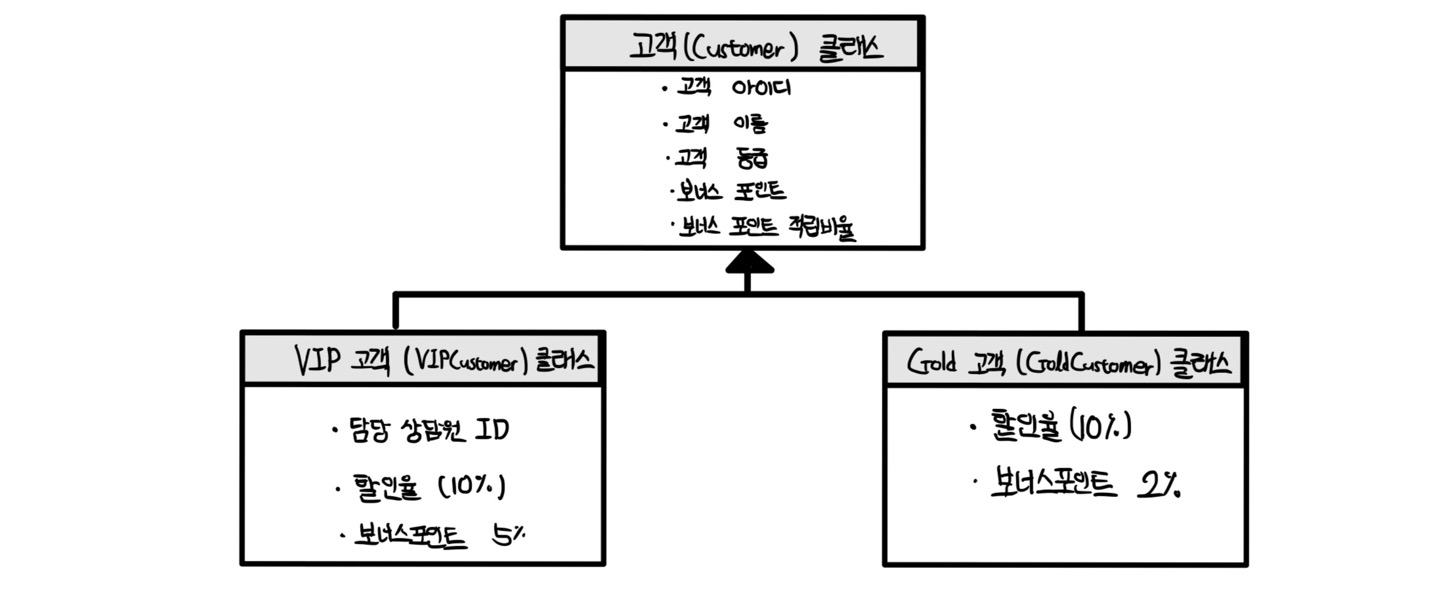 고객(Customer) 클래스
· 고객 아이디
· 고객 이름
· 고객 등급
· 보너스 포인트
· 보너스 포인트 적립비율
VIP 고객 (VIPCustomer) 클래스
· 담당 상담원 ID
· 할인율 (10%)
· 보너스포인트 5%
Gold 고객 (GoldCustomer) 클래스
· 할인율 (10%)
· 보너스포인트 2%